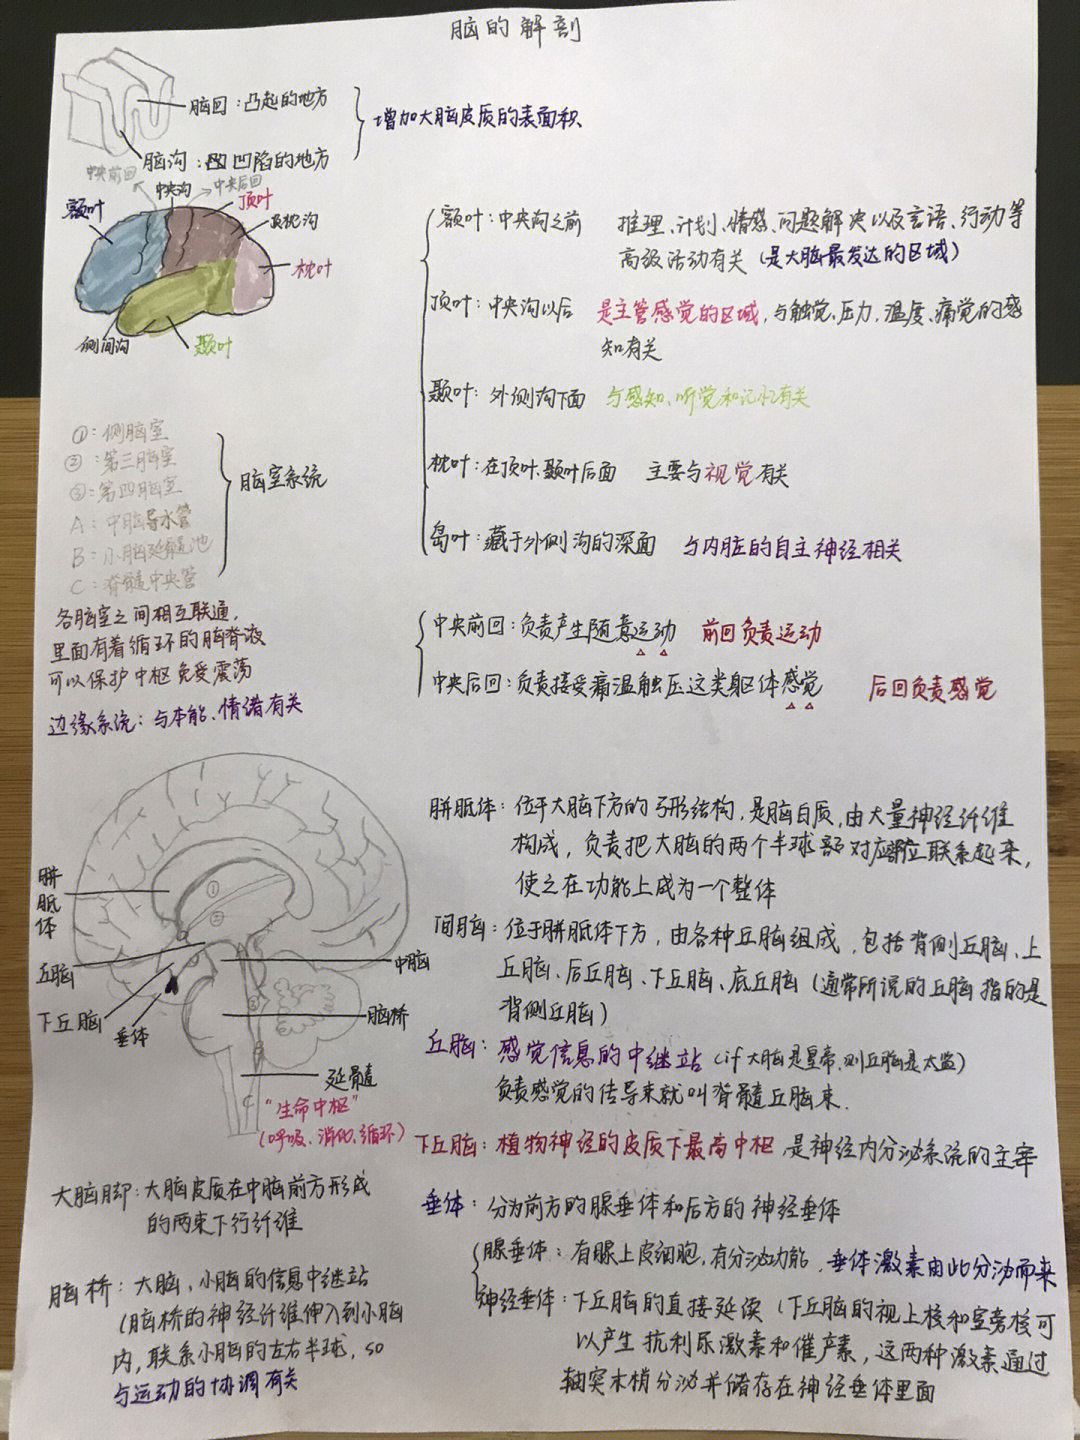 脑的解剖
脑回：凸起的地方
增加大脑皮质的表面积
脑沟：凹陷的地方
中央前回
中央沟
中央后回
额叶
顶叶
顶枕沟
枕叶
侧间沟
颞叶
额叶：中央沟之前 推理、计划、情感、问题解决以及言语、行动等
高级活动有关（是大脑最发达的区域）
顶叶：中央沟以后 是主管感觉的区域，与触觉、压力、温度、痛觉的感
知有关
颞叶：外侧沟下面 与感知、听觉和记忆有关
枕叶：在顶叶、颞叶后面 主要与视觉有关
岛叶：藏于外侧沟的深面 与内脏的自主神经相关
①：侧脑室
②：第三脑室
③：第四脑室
A：中脑导水管
B：小脑延髓池
C：脊髓中央管
脑室系统
各脑室之间相互联通，
里面有着循环的脑脊液
可以保护中枢免受震荡
边缘系统：与本能、情绪有关
中央前回：负责产生随意运动 前回负责运动
中央后回：负责接受痛温触压这类躯体感觉 后回负责感觉
胼胝体
丘脑
下丘脑
垂体
①
②
③
B
C
中脑
脑桥
延髓
“生命中枢”
（呼吸、消化、循环）
胼胝体：位于大脑下方的弓形结构，是脑白质，由大量神经纤维
构成，负责把大脑的两个半球对应部位联系起来，
使之在功能上成为一个整体
间脑：位于胼胝体下方，由各种丘脑组成，包括背侧丘脑、上
丘脑、后丘脑、下丘脑、底丘脑（通常所说的丘脑指的是
背侧丘脑）
丘脑：感觉信息的中继站（if大脑是皇帝，则丘脑是太监）
负责感觉的传导束就叫脊髓丘脑束.
下丘脑：植物神经的皮质下最高中枢，是神经内分泌系统的主宰
垂体：分为前方的腺垂体和后方的神经垂体
腺垂体：有腺上皮细胞，有分泌功能，垂体激素由此分泌而来
神经垂体：下丘脑的直接延续（下丘脑的视上核和室旁核可
以产生抗利尿激素和催产素，这两种激素通过
轴突末梢分泌并储存在神经垂体里面
大脑脚：大脑皮质在中脑前方形成
的两束下行纤维
脑桥：大脑、小脑的信息中继站
（脑桥的神经纤维伸入到小脑
内，联系小脑的左右半球，so
与运动的协调有关